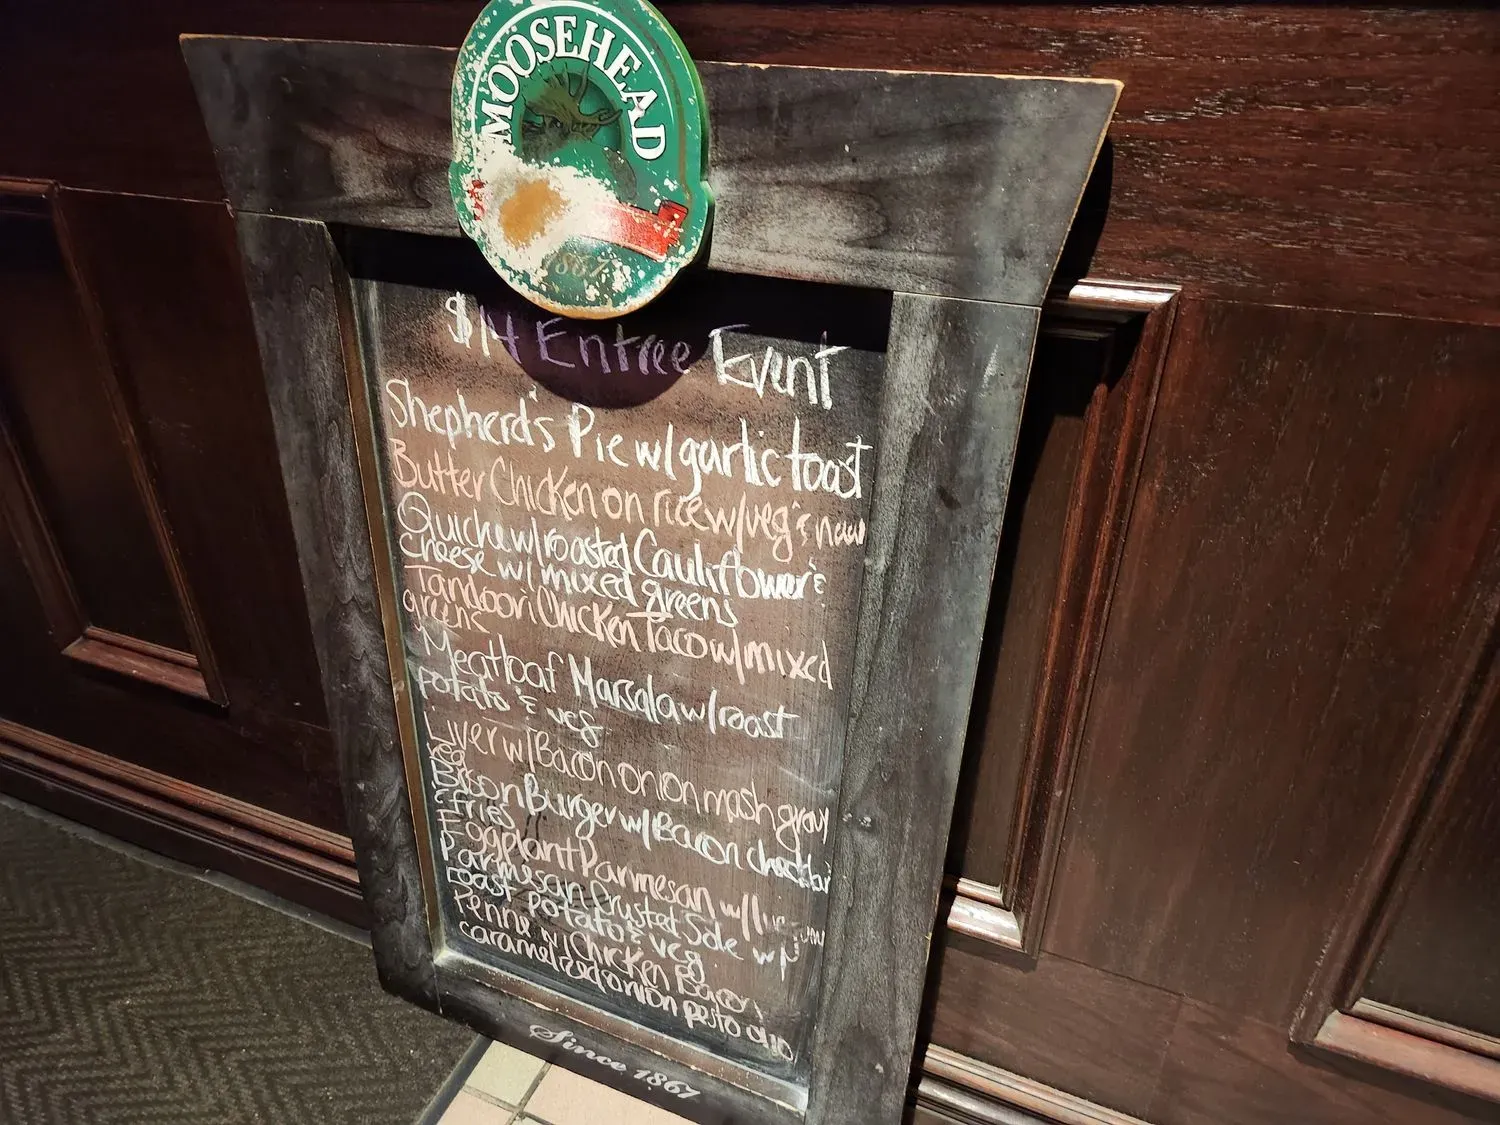 MOOSEHEAD
1867
$14 Entree Event
Shepherd's Pie w/garlic toast
Butter Chicken on rice w/veg & naan
Quiche w/roasted Cauliflower &
cheese w/mixed greens
Tandoori Chicken Taco w/mixed
greens
Meatloaf Marsala w/roast
potato & veg
Liver w/Bacon onion mash gravy
veg
Bison Burger w/Bacon cheddar
& fries
Eggplant Parmesan w/
Parmesan Crusted Sole w/
roast potato & veg
Penne w/Chicken Bacon
caramelized onion pesto
Since 1867